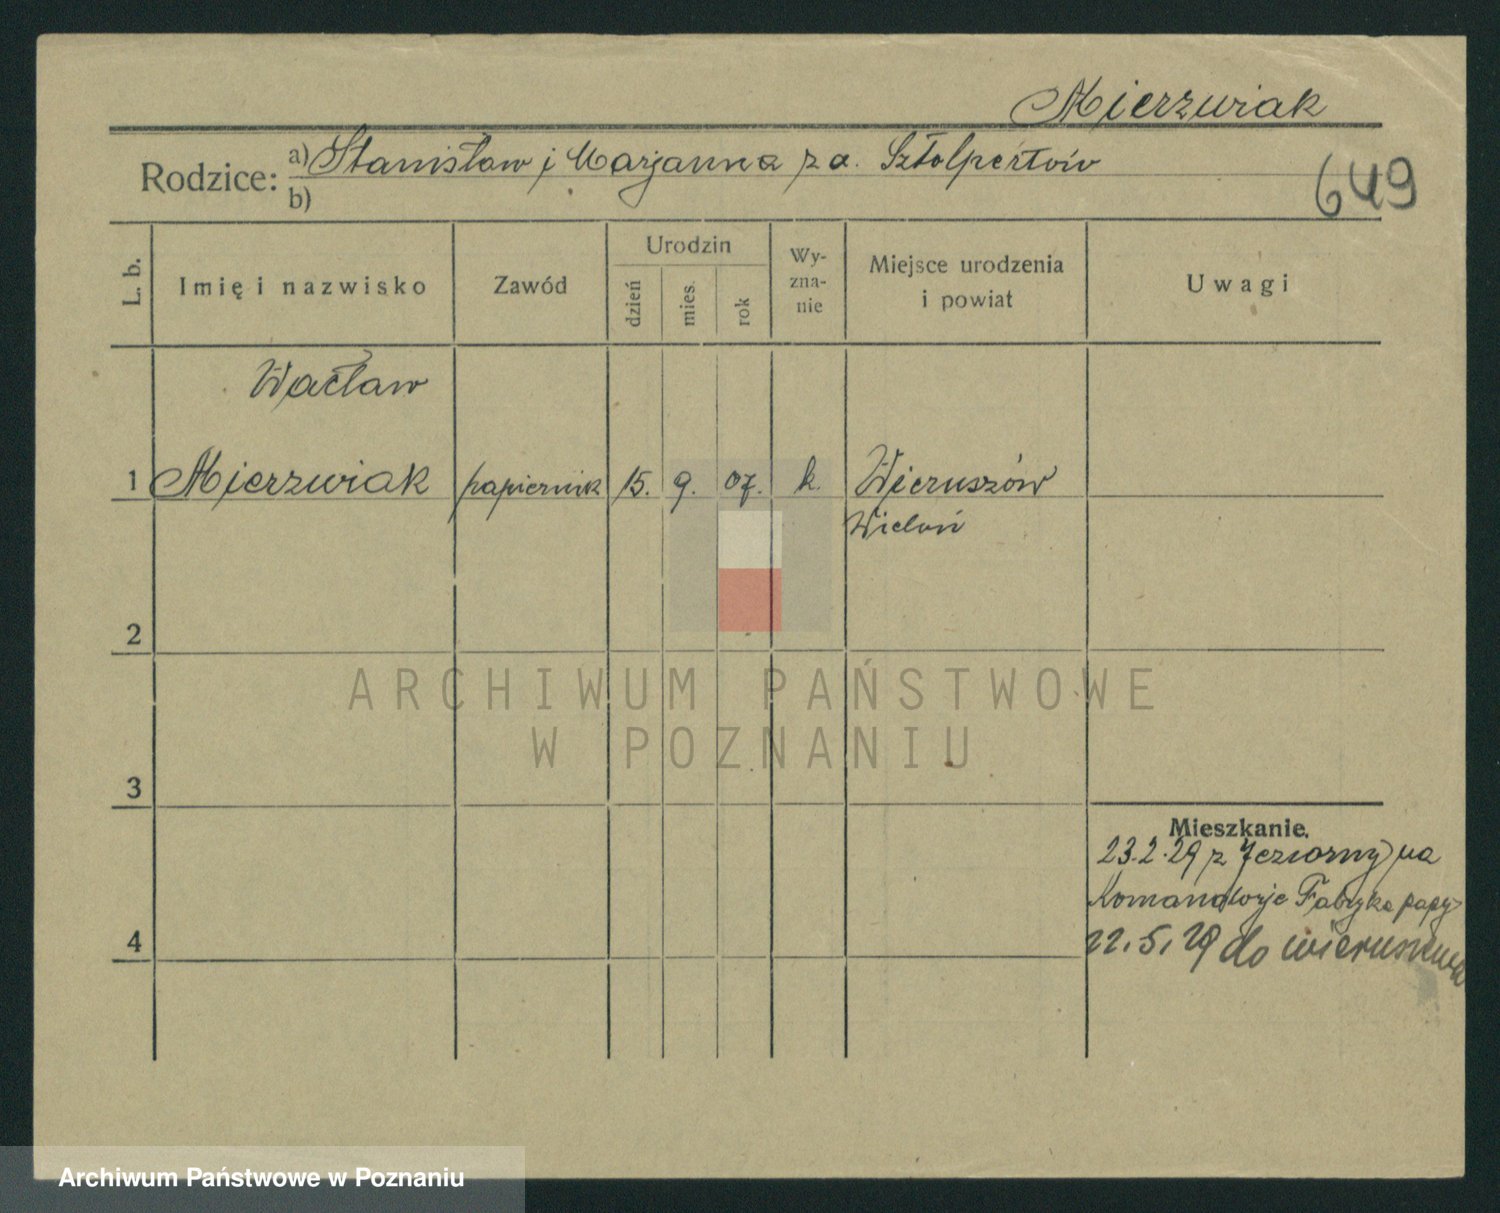 Mierzwiak
Rodzice: a) Stanisław i Marjanna z d. Sztolpertów
b)
649
L. b.
Imię i nazwisko
Zawód
Urodzin
dzień
mies.
rok
Wy-
zna-
nie
Miejsce urodzenia
i powiat
Uwagi
Wacław
1 Mierzwiak papiernik 15. 9. 07. k. Wieruszów
Wieluń
2
3
4
Mieszkanie.
23.2.29 z Jeziorny na
Fabryka papy
22.5.29 do
ARCHIWUM PAŃSTWOWE
W POZNANIU
Archiwum Państwowe w Poznaniu